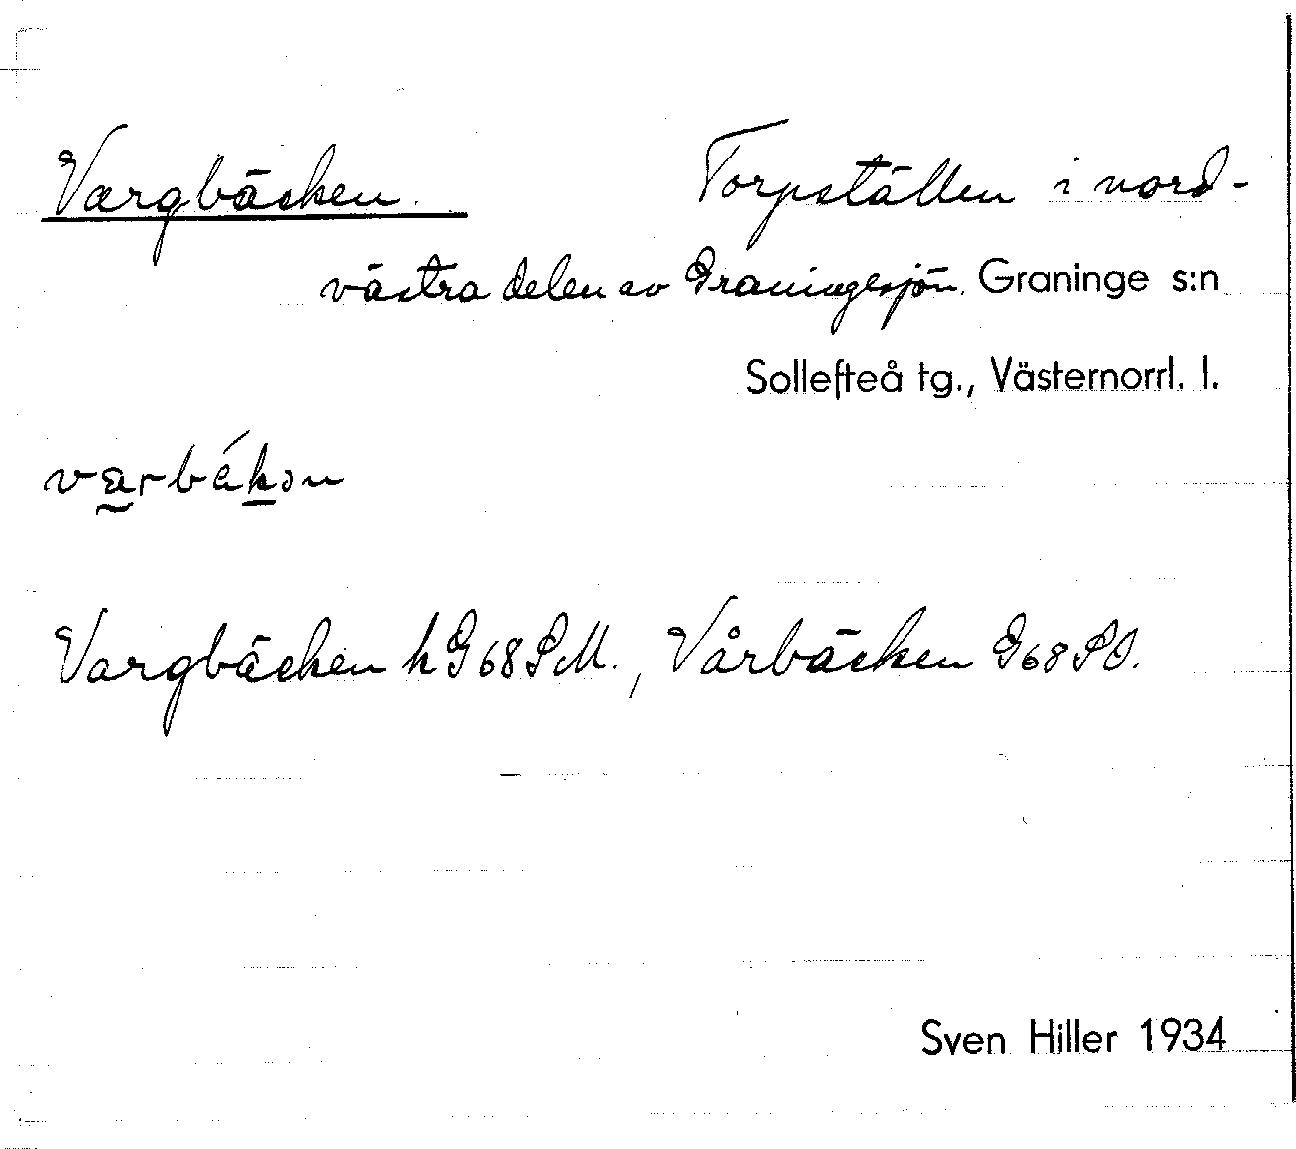 Vargbäcken. Torpställen i nord-
västra delen av Graningesjön. Graninge s:n
Sollefteå tg., Västernorrl. l.
Vargbäcken h G68SM., Vårbäcken G68SO.
Sven Hiller 1934